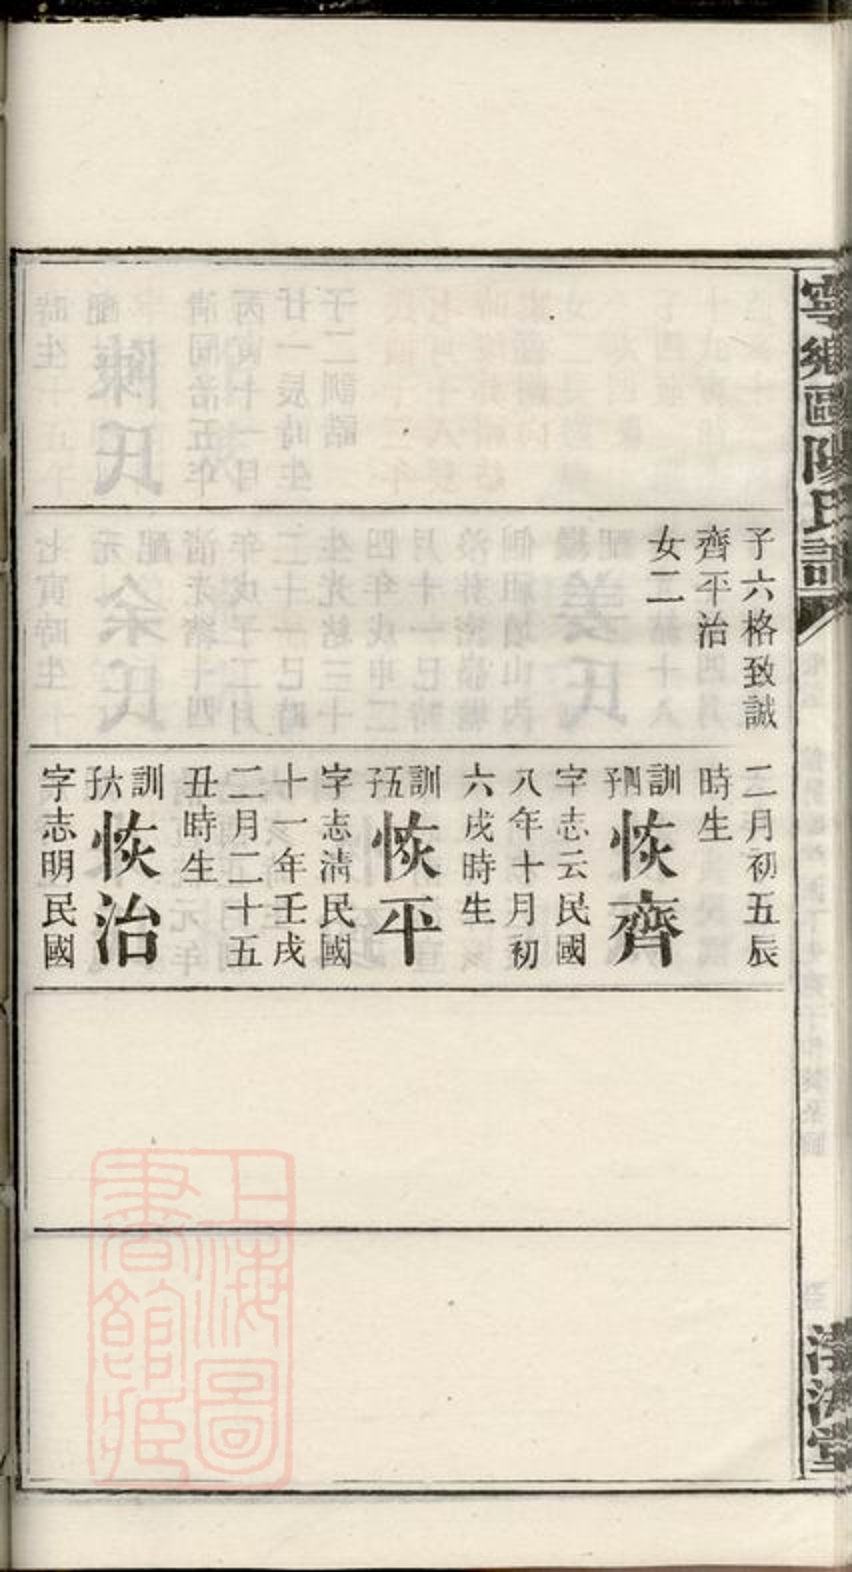 寧鄉歐陽氏譜
子六格致誠
齊平治
女二
二月初五辰
時生
訓四子
恢齊
字志云民國
八年十月初
六戌時生
訓五子
恢平
字志清民國
十一年壬戌
二月二十五
丑時生
訓六子
恢治
字志明民國
渤海堂
上海圖
書館藏